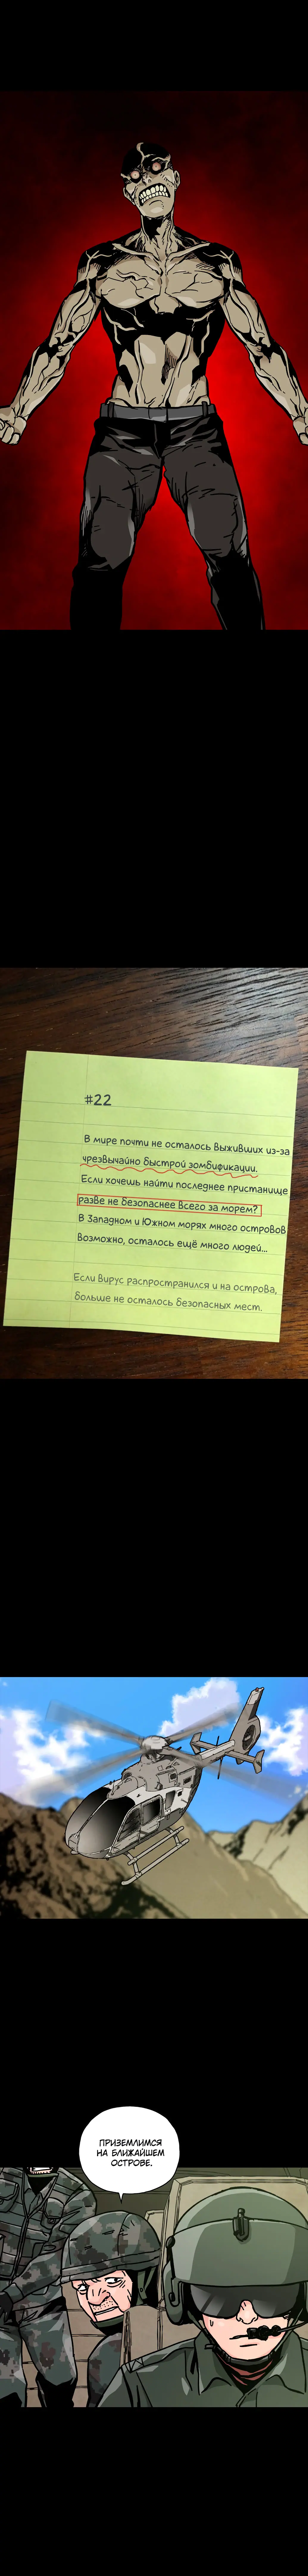 #22
В мире почти не осталось выживших из-за
чрезвычайно быстрой зомбификации.
Если хочешь найти последнее пристанище
разве не безопаснее всего за морем?
В Западном и Южном морях много островов
Возможно, осталось ещё много людей...
Если вирус распространился и на острова,
больше не осталось безопасных мест.
ПРИЗЕМЛИМСЯ
НА БЛИЖАЙШЕМ
ОСТРОВЕ.